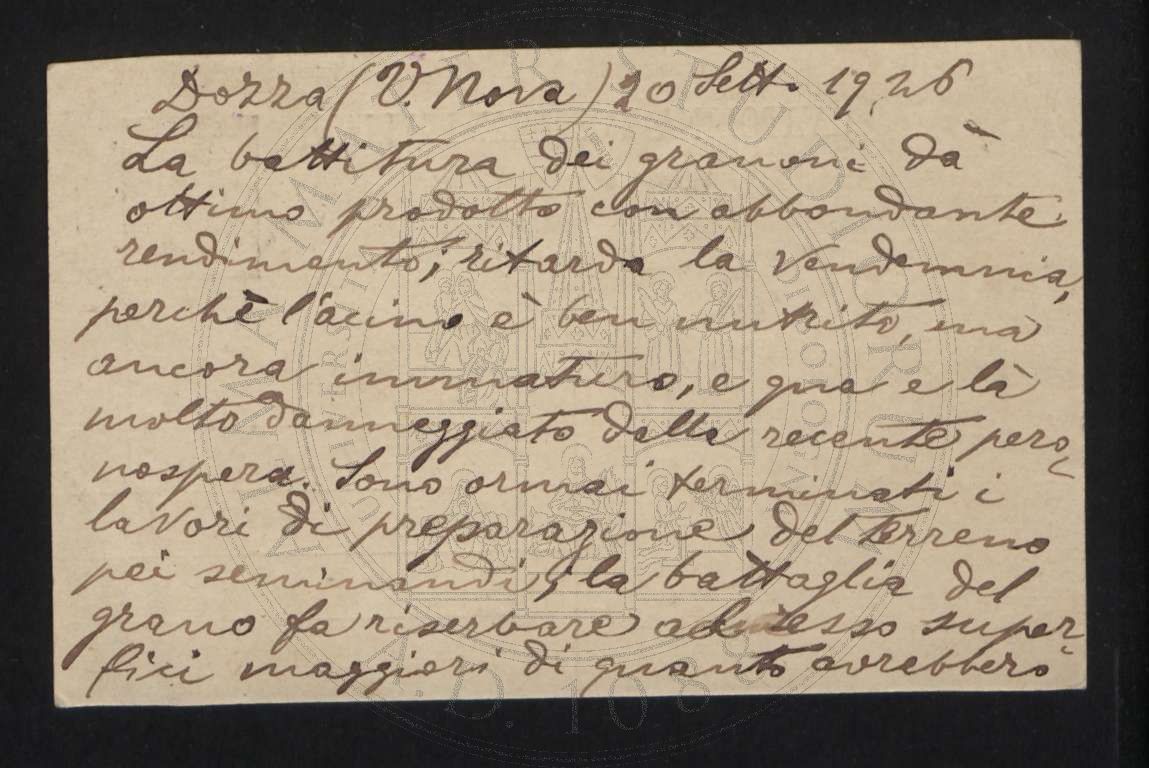 Dozza (V. Nova) 20 Sett. 1926
La battitura dei granoni dà
ottimo prodotto con abbondante
rendimento; ritarda la vendemmia,
perchè l'acino è ben nutrito, ma
ancora immaturo, e qua e là
molto danneggiato dalla recente pero-
nospera. Sono ormai terminati i
lavori di preparazione del terreno
pei seminandi; la battaglia del
grano fa riservare ad esso super-
fici maggiori di quanto avrebbero